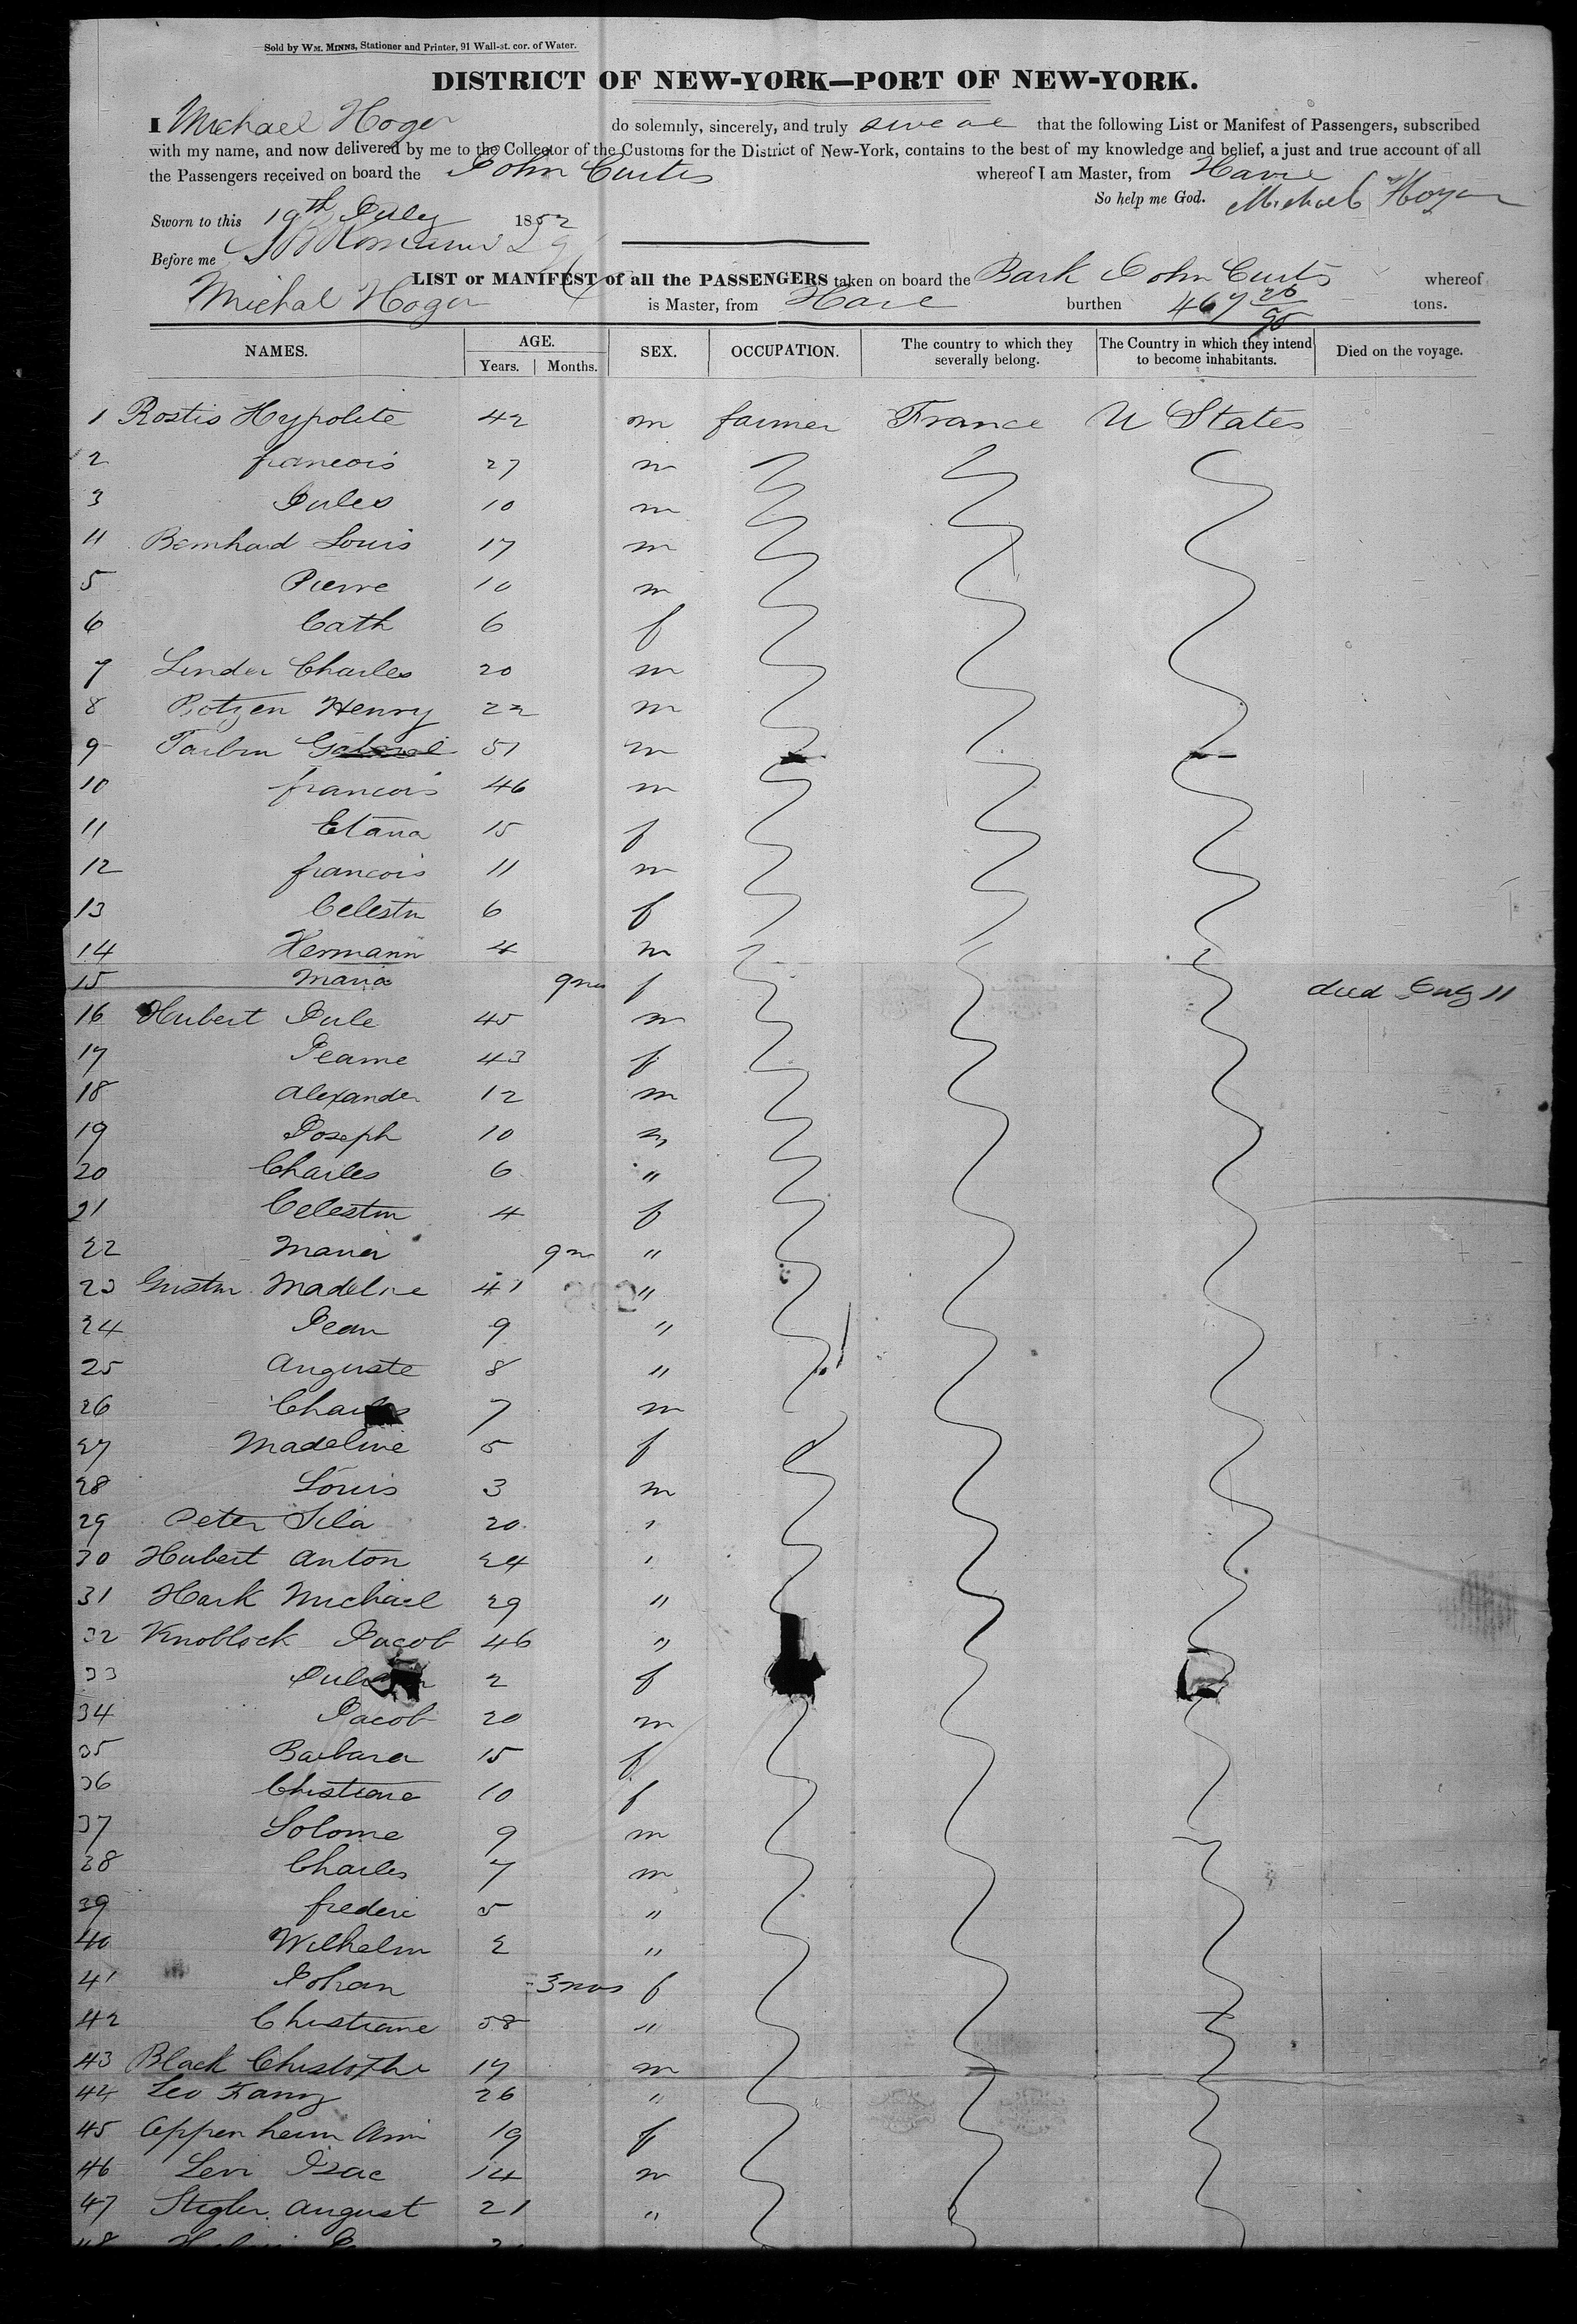 Sold by WM. MINNS, Stationer and Printer, 91 Wall-st. cor. of Water.
DISTRICT OF NEW-YORK—PORT OF NEW-YORK.
I Michael Hoger do solemnly, sincerely, and truly swear that the following List or Manifest of Passengers, subscribed
with my name, and now delivered by me to the Collector of the Customs for the District of New-York, contains to the best of my knowledge and belief, a just and true account of all
the Passengers received on board the John Curtis whereof I am Master, from Havre
So help me God. Michael Hoger
Sworn to this 19th July 1852
Before me
LIST or MANIFEST of all the PASSENGERS taken on board the Bark John Curtis whereof
Michal Hoger is Master, from Havre burthen 467 26/95 tons.
NAMES. AGE. Years. Months. SEX. OCCUPATION. The country to which they severally belong. The Country in which they intend to become inhabitants. Died on the voyage.
1 Rostis Hypolite 42 m farmer France U States
2 francois 27 m
3 Jules 10 m
11 Bernhard Louis 17 m
5 Pierre 10 m
6 Cath 6 f
7 Linder Charles 20 m
8 Botzen Henry 22 m
9 51 m
10 francois 46 m
11 Etana 15 f
12 francois 11 m
13 Celestn 6 f
14 Hermann 4 m
15 Maria 9ms f died July 11
16 Hubert Jule 45 m
17 Jeanne 43 f
18 Alexander 12 m
19 Joseph 10 m
20 Charles 6 "
21 Celestin 4 f
22 Maria 9m "
23 Gustin Madeline 41 "
24 Jean 9 "
25 Auguste 8 "
26 Charles 7 m
27 Madeline 5 f
28 Louis 3 m
29 Peter Sila 20 "
30 Hubert Anton 24 "
31 Hark Michael 29 "
32 Knoblock Jacob 46 "
33 2 f
34 Jacob 20 m
35 Barbara 15 f
36 Christiane 10 f
37 Solome 9 m
38 Charles 7 m
39 frederic 5 "
40 Wilhelm 2 "
41 Johan 3mos f
42 Christiane 38 "
43 Black Christothe 17 m
44 Leo 26 "
45 Oppenheim Ann 19 f
46 Levi Isac 14 m
47 Stegler August 21 "
48